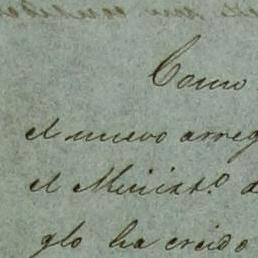 Como
el nuevo arreg
el Minist.o d
glo ha creido